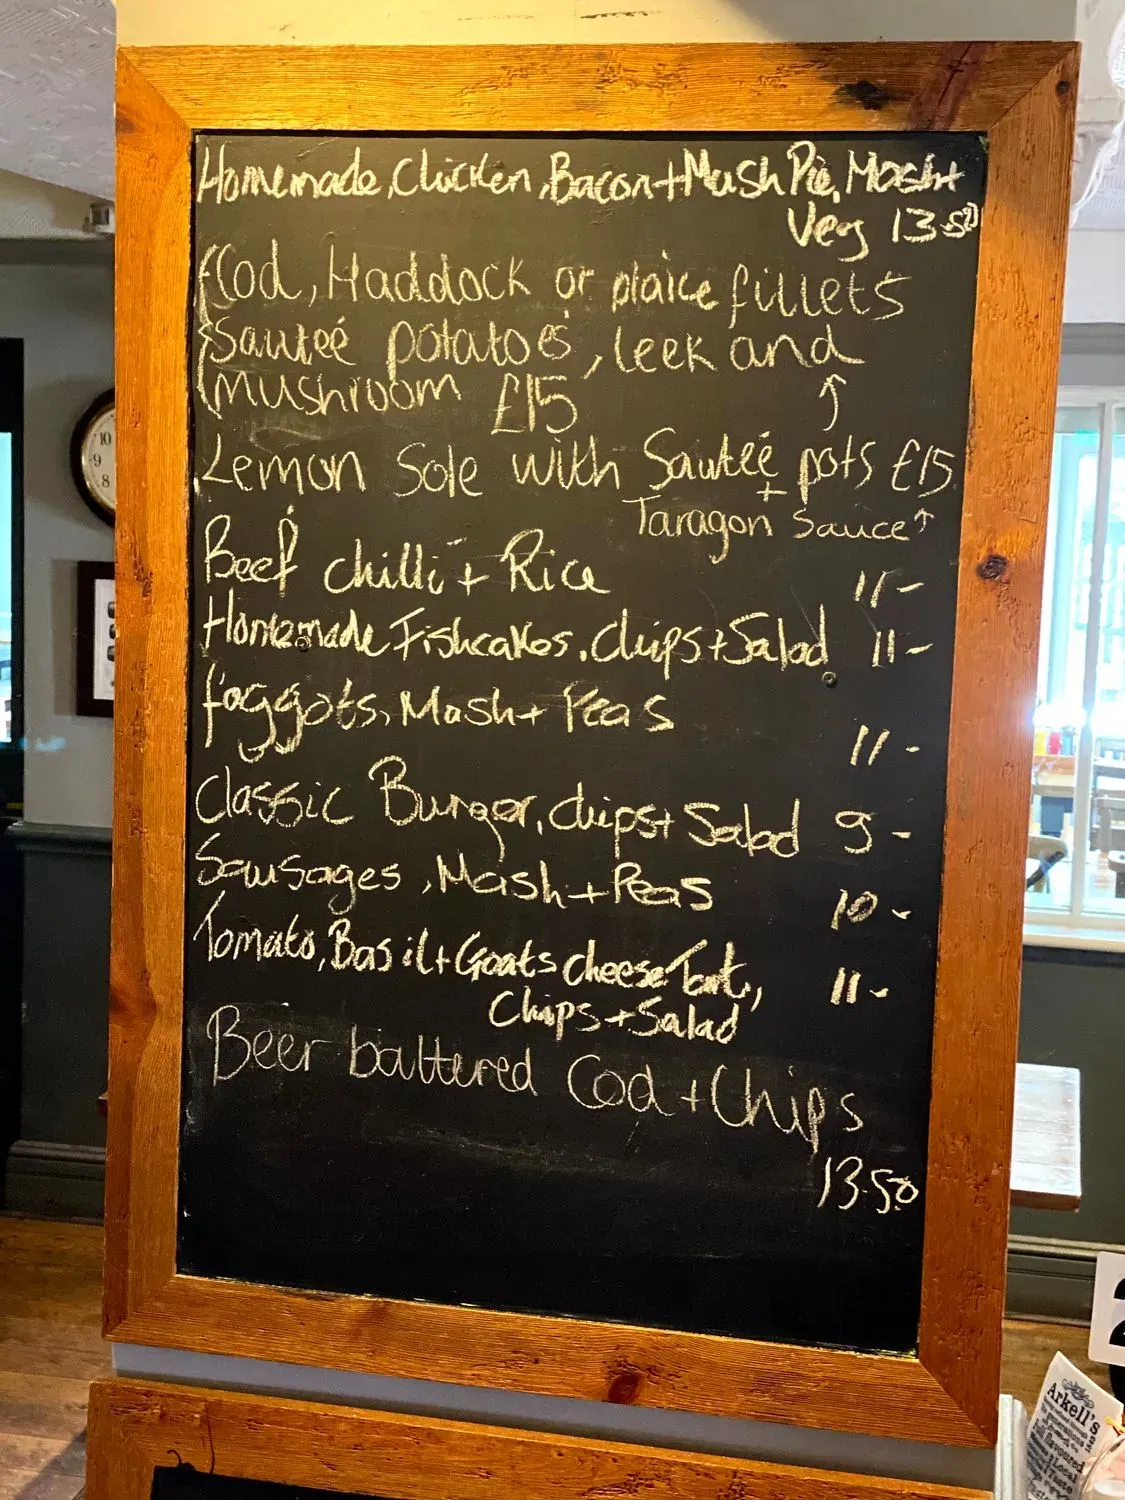 Homemade, Chicken, Bacon + Mush Pie, Mash +
Veg 13.50
Cod, Haddock or plaice fillets
Sauteé potatoes, leek and
mushroom £15
Lemon Sole with Sauteé pots £15
+
Taragon Sauce
Beef chilli + Rice 11-
Homemade Fishcakes, Chips + Salad 11-
faggots, Mash + Peas 11-
Classic Burger, Chips + Salad 9-
Sausages, Mash + Peas 10-
Tomato, Basil + Goats cheese Tart, 11-
Chips + Salad
Beer battered Cod + Chips
13.50
10
9
8
2
Arkell's